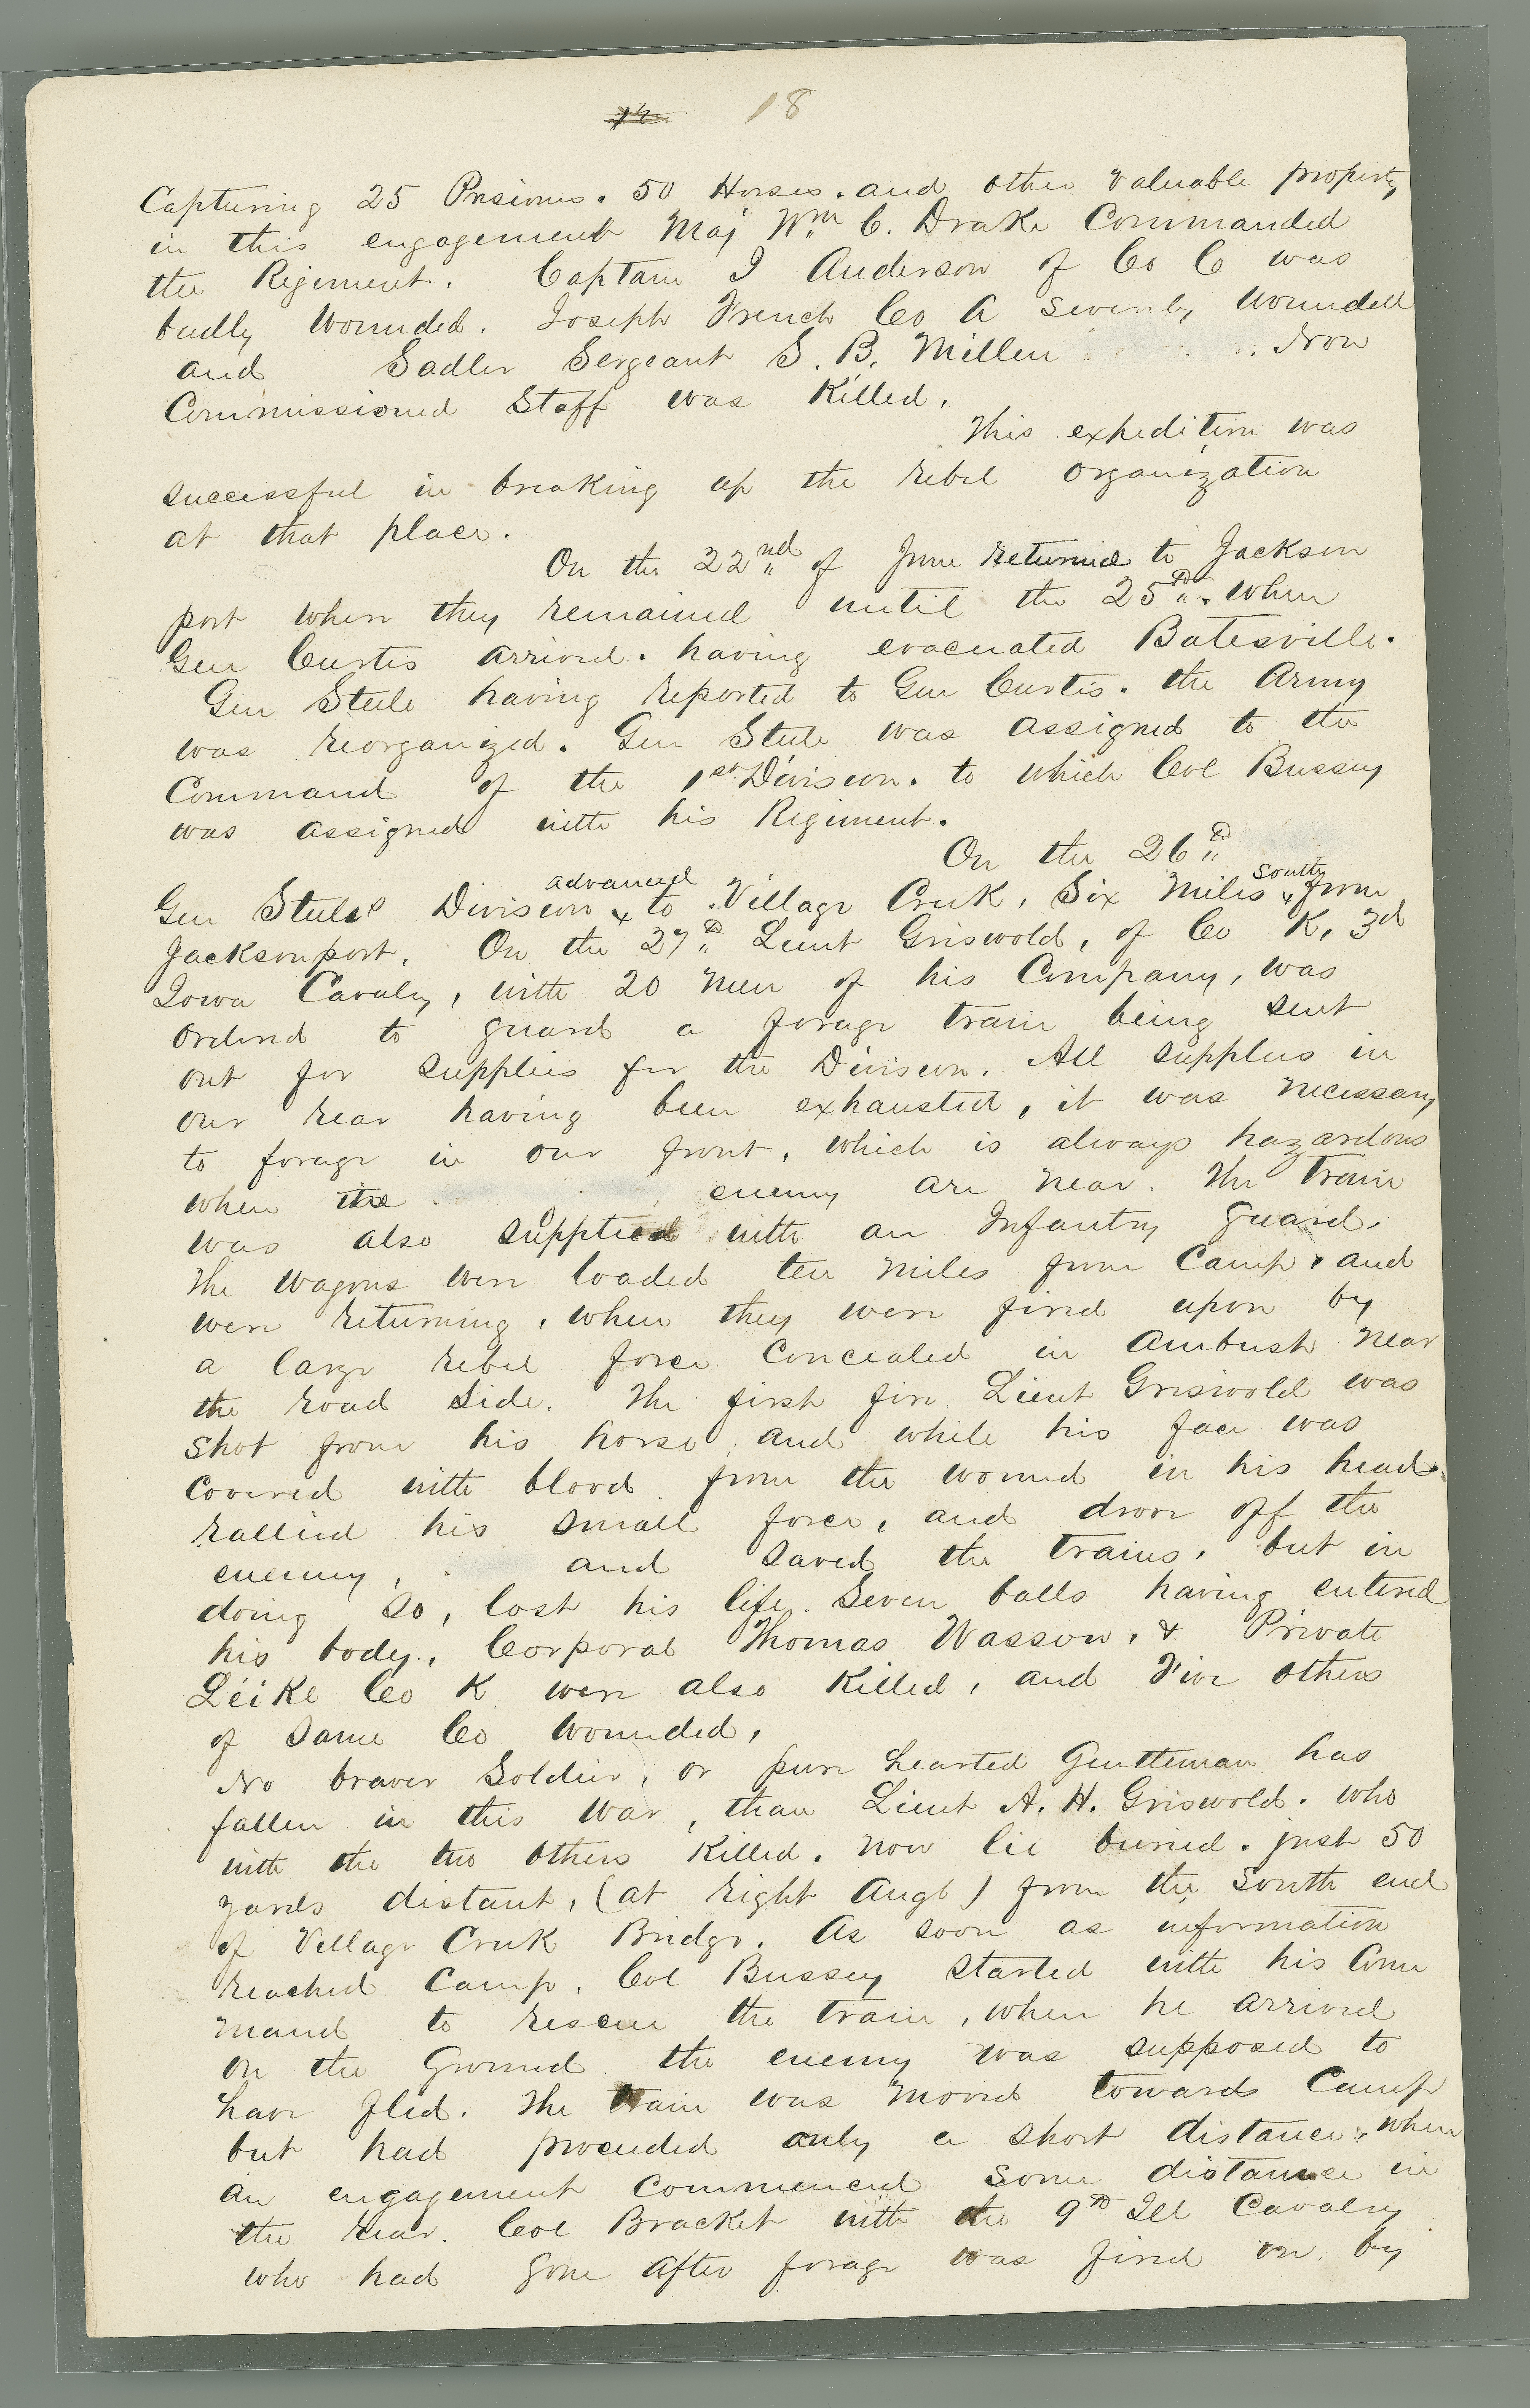 18
Capturing 25 Prisioners. 50 Horses. and other valuable property
in this engagement Maj Wm C. Drake Commanded
the Regiment. Captain I Anderson of Co C was
badly wounded. Joseph French Co A severely wounded
and Sadler Sergeant S. B. Miller Non
Commissioned Staff was Killed.
This expedition was
successful in breaking up the rebel organization
at that place.
On the 22nd of June returned to Jackson
port where they remained until the 25th. when
Gen Curtis arrived. having evacuated Batesville.
Gen Steele having reported to Gen Curtis. the Army
was reorganized. Gen Steele was assigned to the
Command of the 1st Division. to which Col Bussey
was assigned with his Regiment.
On the 26th
Gen Steeles Division advanced to Village Creek, Six Miles South from
Jacksonport. On the 27th Lieut Griswold, of Co K, 3d
Iowa Cavalry, with 20 men of his Company, was
ordered to guard a forage train being sent
out for supplies for the Division. All supplies in
our rear having been exhausted, it was necessary
to forage in our front, which is always hazardous
when the enemy are near. The train
was also supplied with an Infantry guard.
The wagons were loaded ten miles from Camp, and
were returning, when they were fired upon by
a large rebel force concealed in ambush near
the road side. The first fire Lieut Griswold was
shot from his horse and while his face was
covered with blood from the wound in his head.
rallied his small force, and drove off the
enemy, and saved the trains, but in
doing so, lost his life. Seven balls having entered
his body. Corporal Thomas Wasson, & Private
Leike Co K were also Killed, and Five others
of same Co wounded,
No braver Soldier, or pure hearted Gentleman has
fallen in this war, than Lieut A. H. Griswold. who
with the two others Killed. now lie buried. just 50
yards distant, (at right Angle) from the South end
of Village Creek Bridge. As soon as information
reached Camp, Col Bussey started with his Com
mand to rescue the train, when he arrived
on the Ground the enemy was supposed to
have fled. The train was moved towards Camp
but had proceeded only a short distance, when
an engagement commenced some distance in
the rear. Col Bracket with the 9th Ill Cavalry
who had gone after forage was fired on by